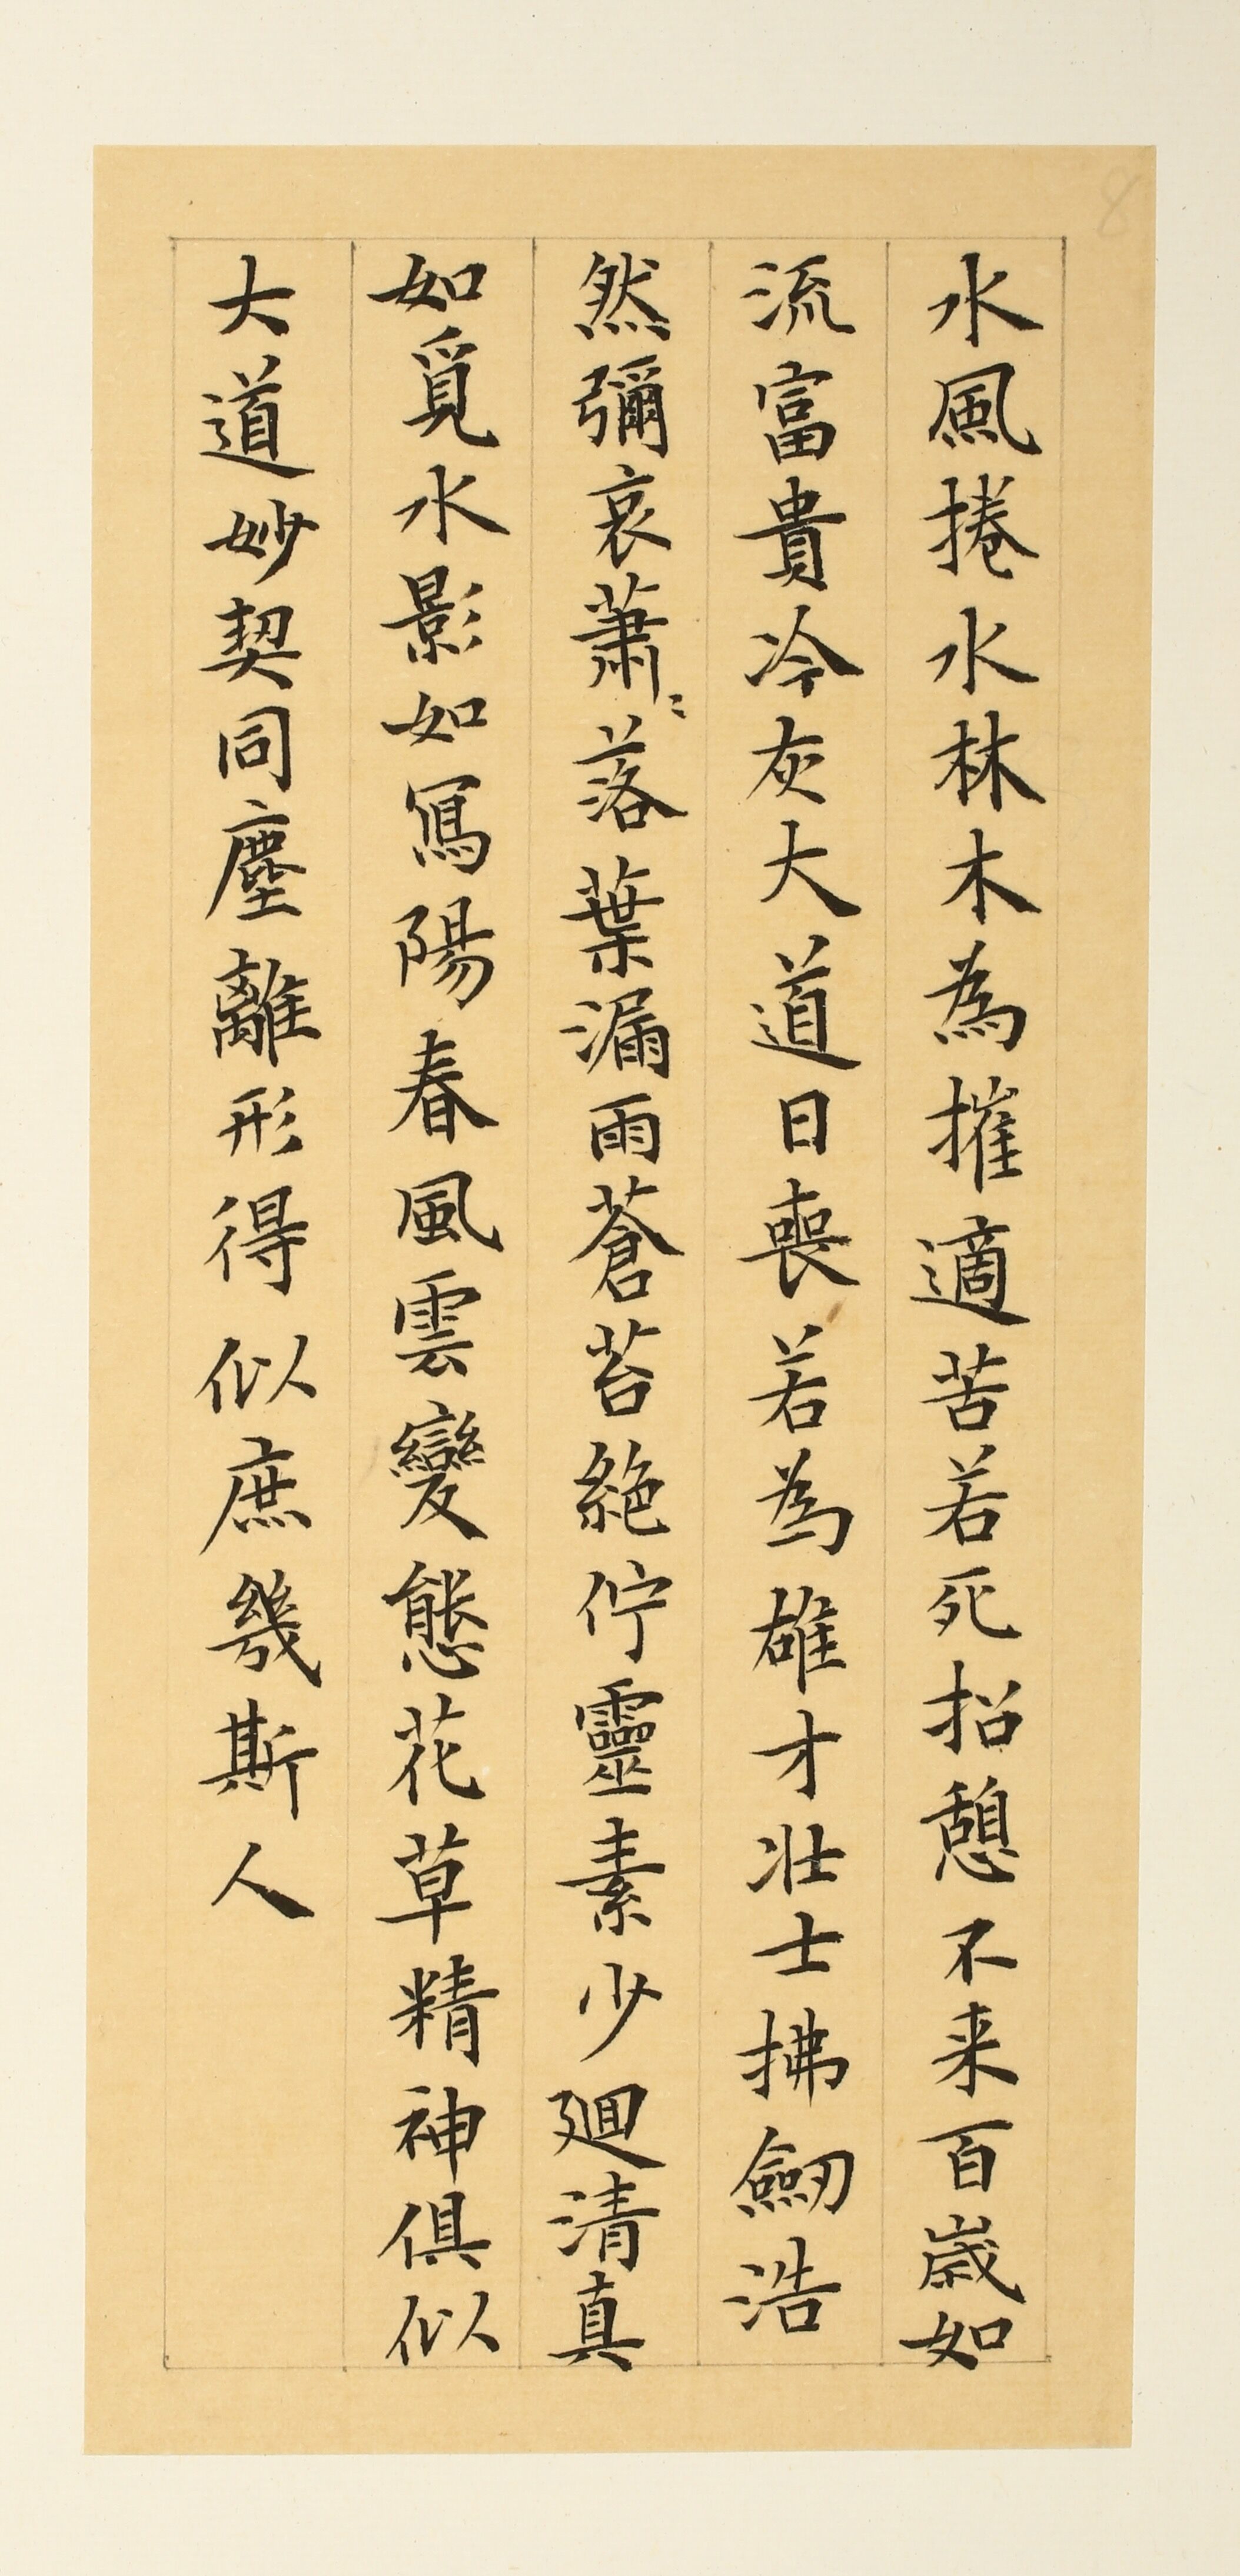 8
水風捲水林木為摧適苦若死招憩不来百歲如
流富貴冷灰大道日喪若為雄才壯士拂劒浩
然彌哀蕭〻落葉漏雨蒼苔絕佇靈素少廻清真
如覓水影如寫陽春風雲變態花草精神俱似
大道妙契同塵離形得似庶幾斯人